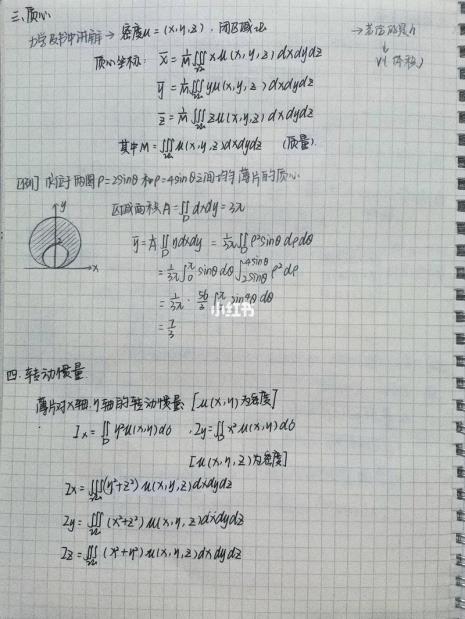 三、质心
力学及书中讲解→ 密度μ=(x,y,z), 闭区域Ω →若密度是1
↓
V(体积)
质心坐标: x̄=1/M∭_Ω xμ(x,y,z)dxdydz
ȳ=1/M∭_Ω yμ(x,y,z)dxdydz
z̄=1/M∭_Ω zμ(x,y,z)dxdydz
其中M=∭_Ω μ(x,y,z)dxdydz (质量)
[例] 求位于两圆ρ=2sinθ和ρ=4sinθ之间均匀薄片的质心.
区域面积A=∬_D dxdy=3π
y
x
ȳ=1/A∬_D ydxdy=1/3π∬_D ρ²sinθdρdθ
=1/3π∫_0^π sinθdθ∫_{2sinθ}^{4sinθ}ρ²dρ
=1/3π·56/3∫_0^π sin⁴θdθ
小红书
=7/3
四.转动惯量
薄片对x轴,y轴的转动惯量 [μ(x,y)为密度]
Ix=∬_D y²μ(x,y)dσ , Iy=∬_D x²μ(x,y)dσ
[μ(x,y,z)为密度]
Ix=∭_Ω(y²+z²)μ(x,y,z)dxdydz
Iy=∭_Ω(x²+z²)μ(x,y,z)dxdydz
Iz=∭_Ω(x²+y²)μ(x,y,z)dxdydz